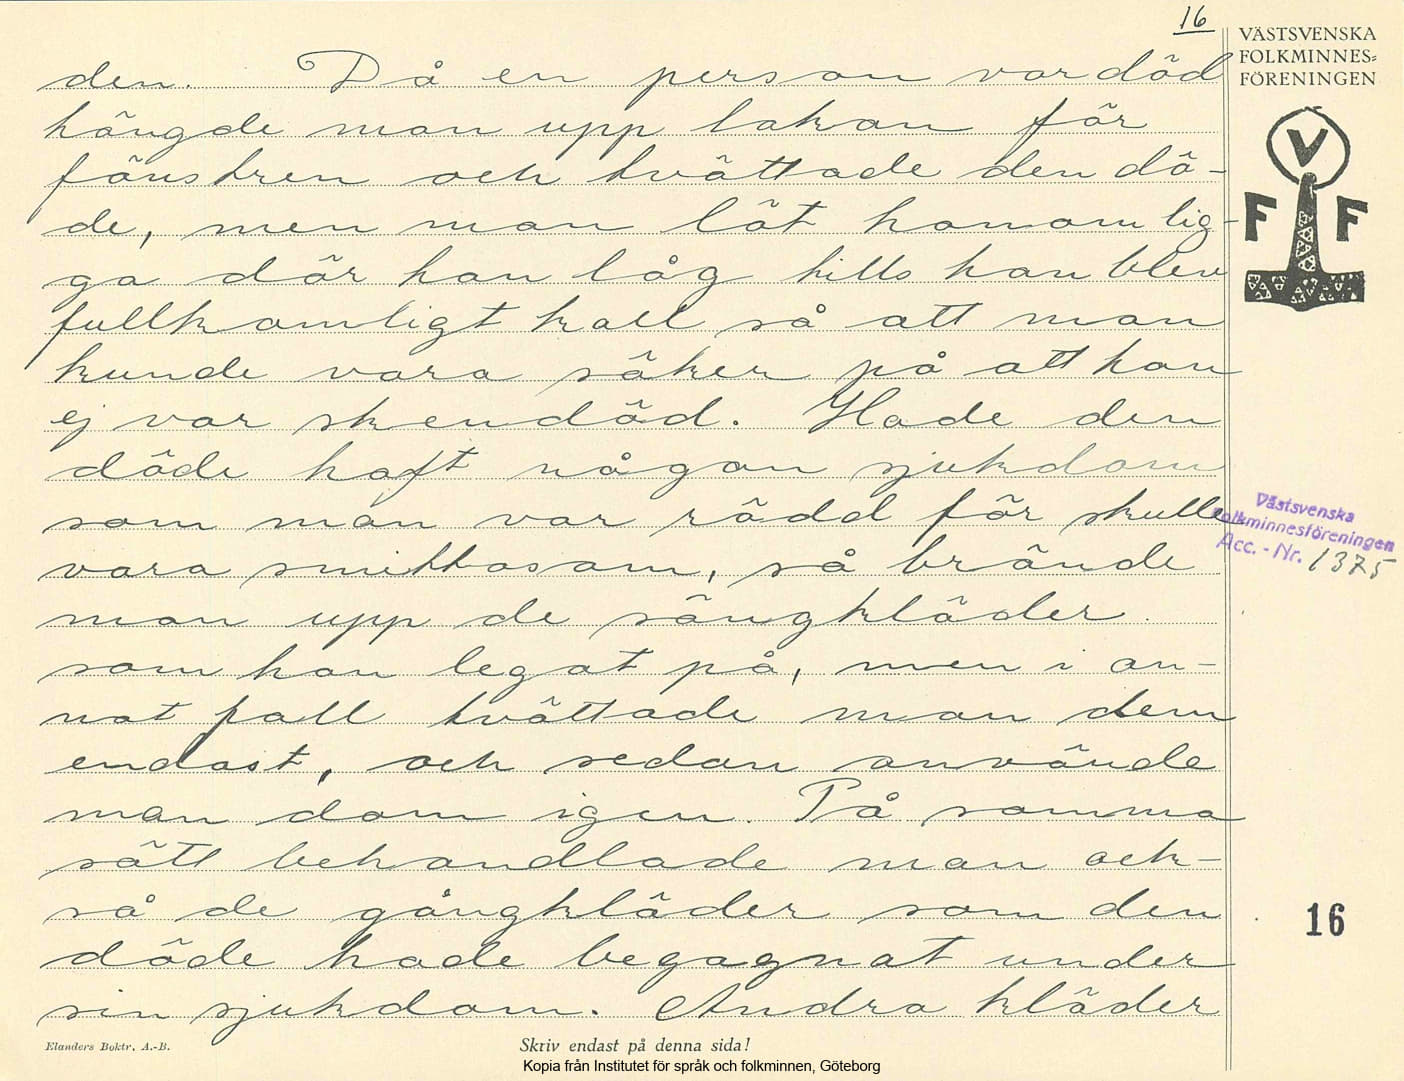 16
VÄSTSVENSKA
FOLKMINNES=
FÖRENINGEN
V
F F
den. Då en person var död
hängde man upp lakan för
fönstren och tvättade den dö-
de, men man lät honom lig-
ga där han låg tills han blev
fullkomligt kall så att man
kunde vara säker på att han
ej var skendöd. Hade den
döde haft någon sjukdom
som man var rädd för skulle
vara smittosam, så brände
man upp de sängkläder
som han legat på, men i an-
nat fall tvättade man dem
endast, och sedan använde
man dom igen. På samma
sätt behandlade man ock-
så de gångkläder som den
döde hade begagnat under
sin sjukdom. Andra kläder
Västsvenska
Folkminnesföreningen
Acc. - Nr. 1375
16
Elanders Boktr. A.-B.
Skriv endast på denna sida!
Kopia från Institutet för språk och folkminnen, Göteborg